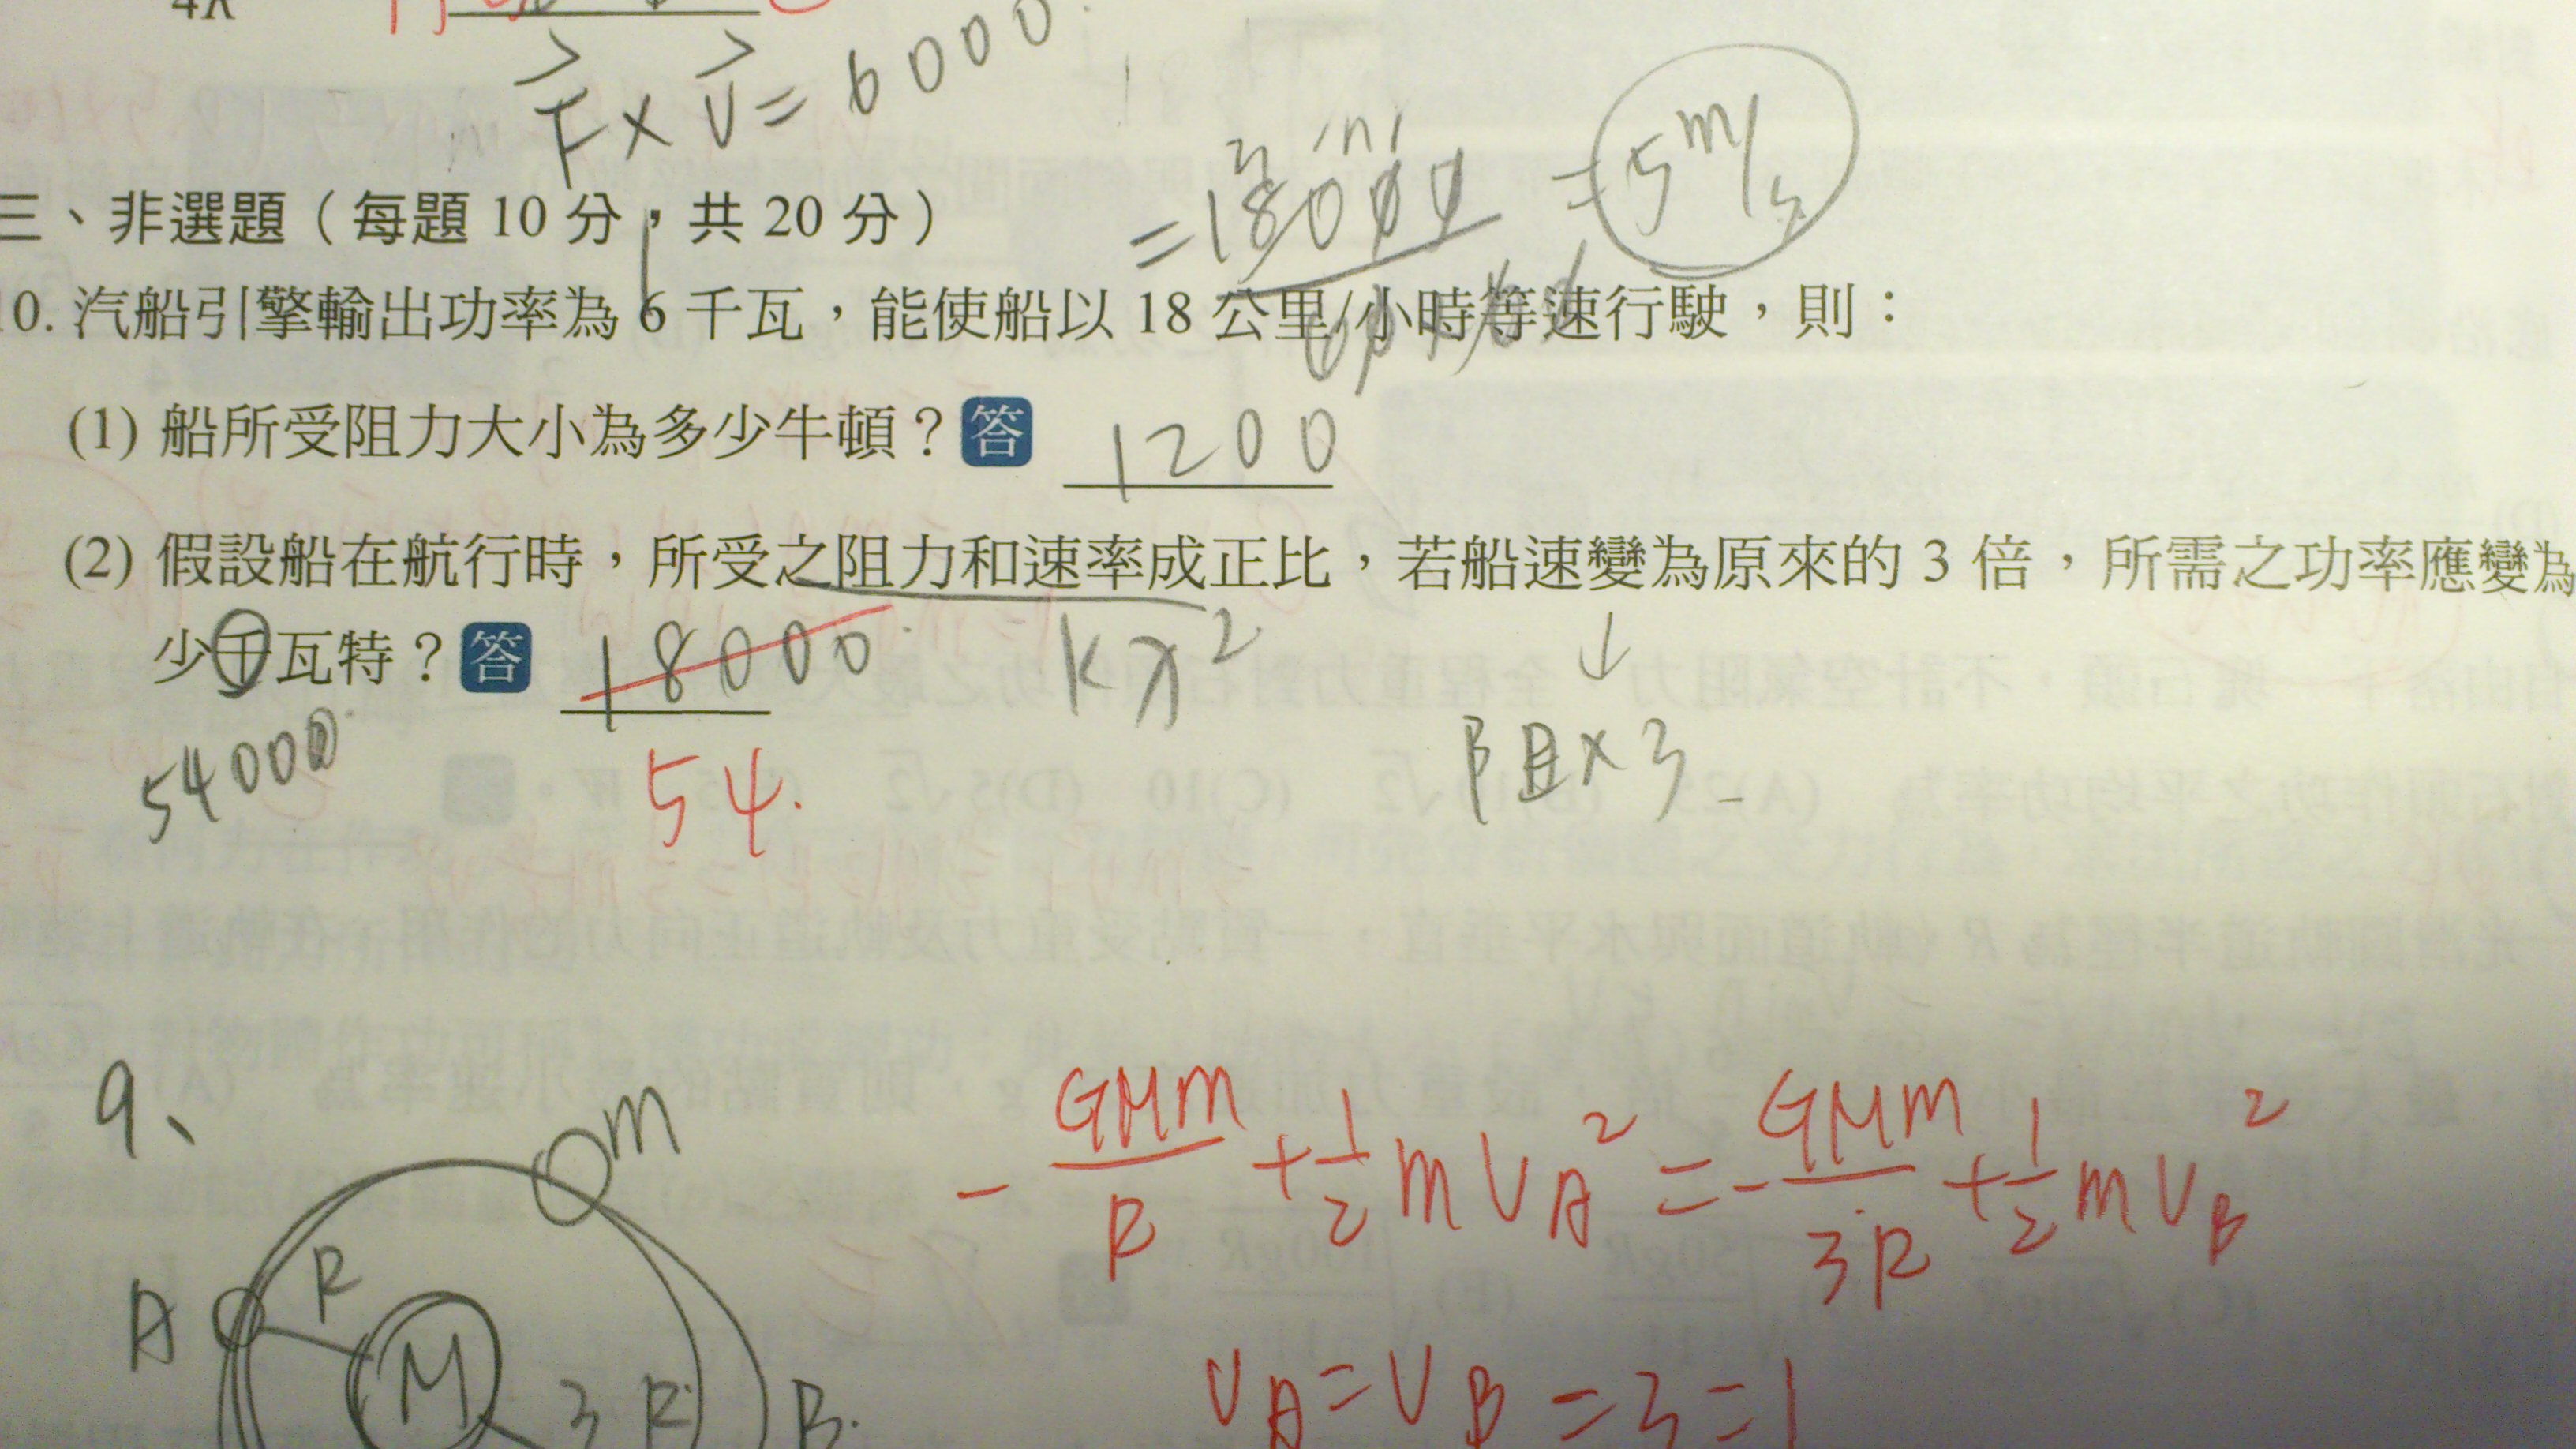 4R
F × V = 6000
三、非選題（每題 10 分，共 20 分）
= 18000 = 5 m/s
60×60
10. 汽船引擎輸出功率為 6 千瓦，能使船以 18 公里/小時等速行駛，則：
(1) 船所受阻力大小為多少牛頓？答 1200
(2) 假設船在航行時，所受之阻力和速率成正比，若船速變為原來的 3 倍，所需之功率應變為
少千瓦特？答 18000 kx² ↓
54000 54. 阻×3
9、
m
-GMm/R + 1/2 mVA² = -GMm/3R + 1/2 mVB²
A R M 3R B
VA = VB = 3 = 1